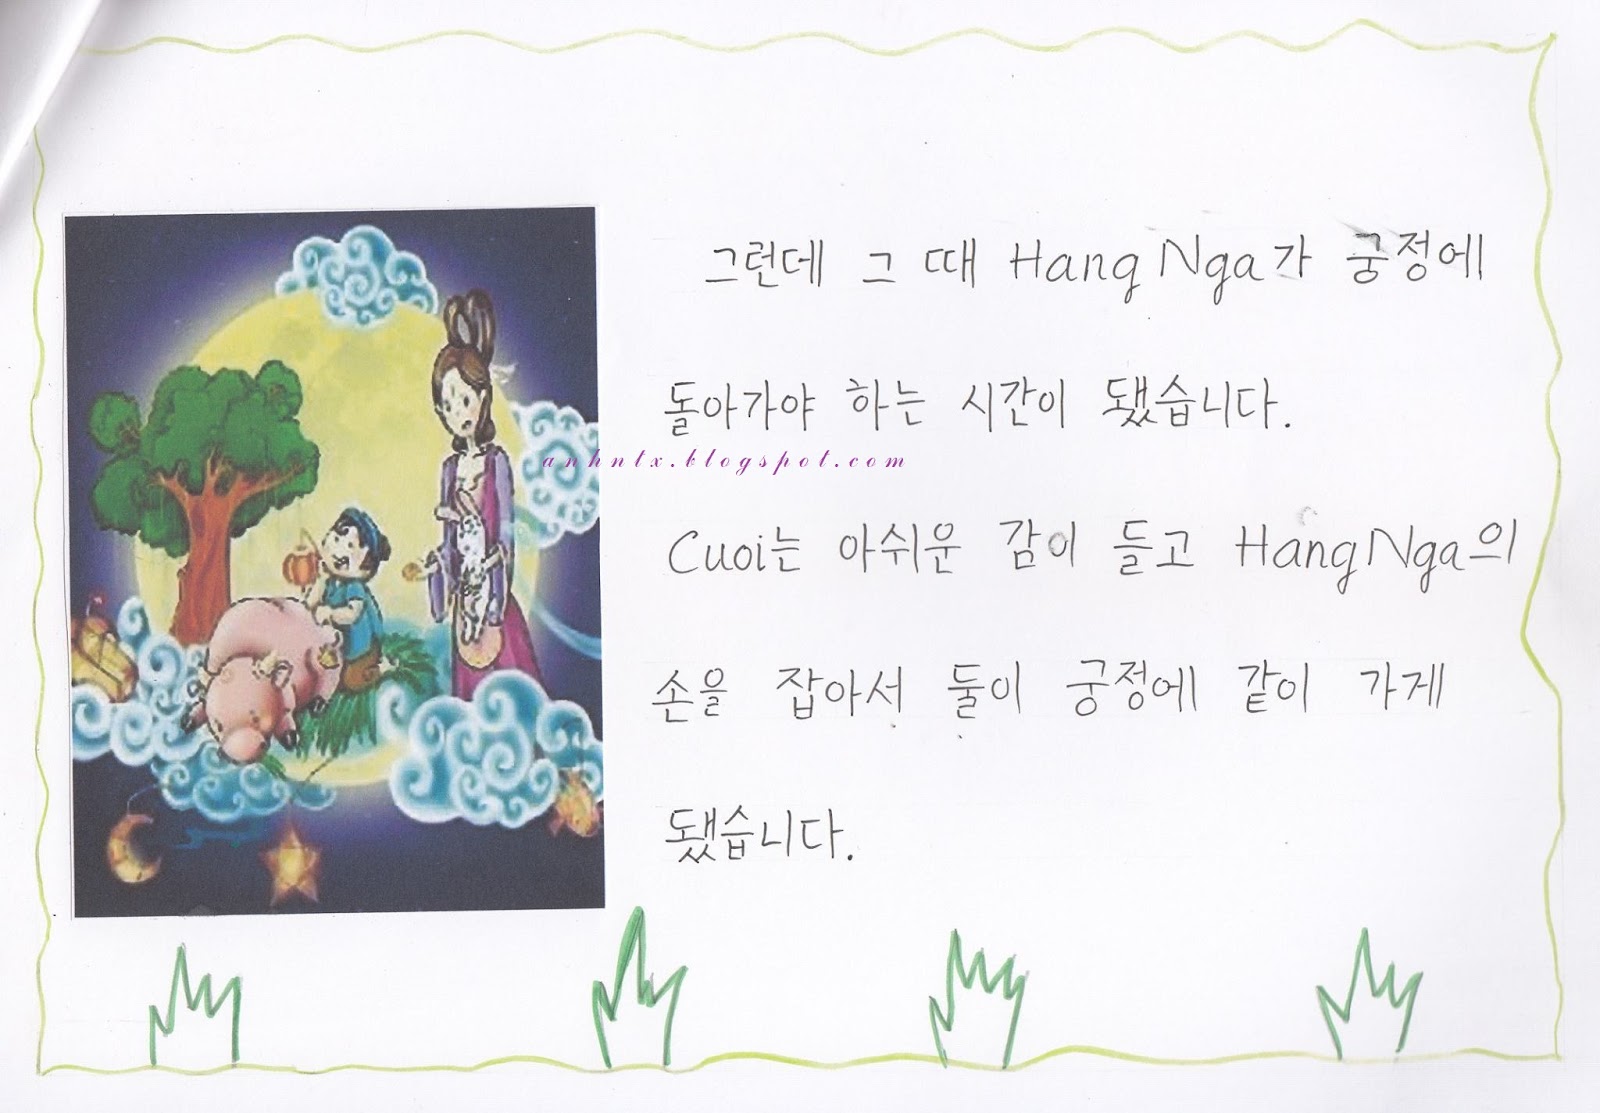 그런데 그 때 Hang Nga가 궁정에
돌아가야 하는 시간이 됐습니다.
anhnlx.blogspot.com
Cuoi는 아쉬운 감이 들고 Hang Nga의
손을 잡아서 둘이 궁정에 같이 가게
됐습니다.